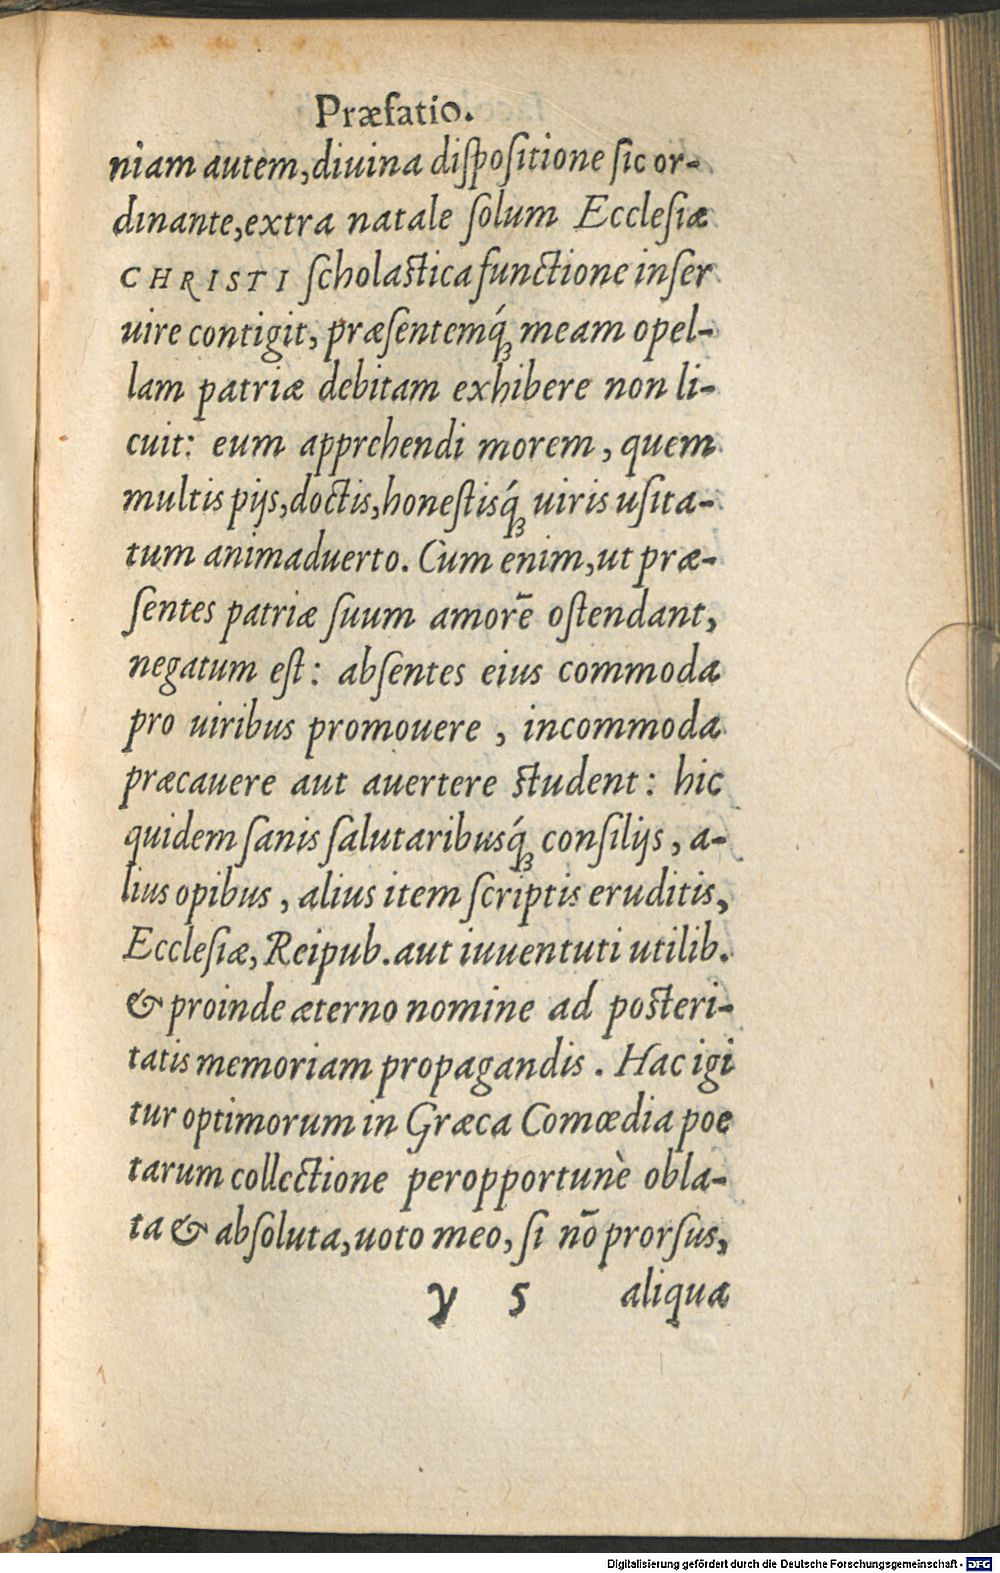 Præfatio.
niam autem, diuina diſpoſitione ſic or-
dinante, extra natale ſolum Eccleſiæ
CHRISTI ſcholaſtica functione inſer
uire contigit, præſentemq́ꝫ meam opel-
lam patriæ debitam exhibere non li-
cuit: eum apprehendi morem, quem
multis pijs, doctis, honeſtisq́ꝫ uiris uſita-
tum animaduerto. Cum enim, ut præ-
ſentes patriæ ſuum amorē oſtendant,
negatum eſt: abſentes eius commoda
pro uiribus promouere, incommoda
præcauere aut auertere ſtudent: hic
quidem ſanis ſalutaribusq́ꝫ conſilijs, a-
lius opibus, alius item ſcriptis eruditis,
Eccleſiæ, Reipub. aut iuuentuti utilib.
& proinde æterno nomine ad poſteri-
tatis memoriam propagandis. Hac igi
tur optimorum in Græca Comœdia poe
tarum collectione peropportunè obla-
ta & abſoluta, uoto meo, ſi nō prorſus,
γ 5 aliqua
Digitalisierung gefördert durch die Deutsche Forschungsgemeinschaft - DFG